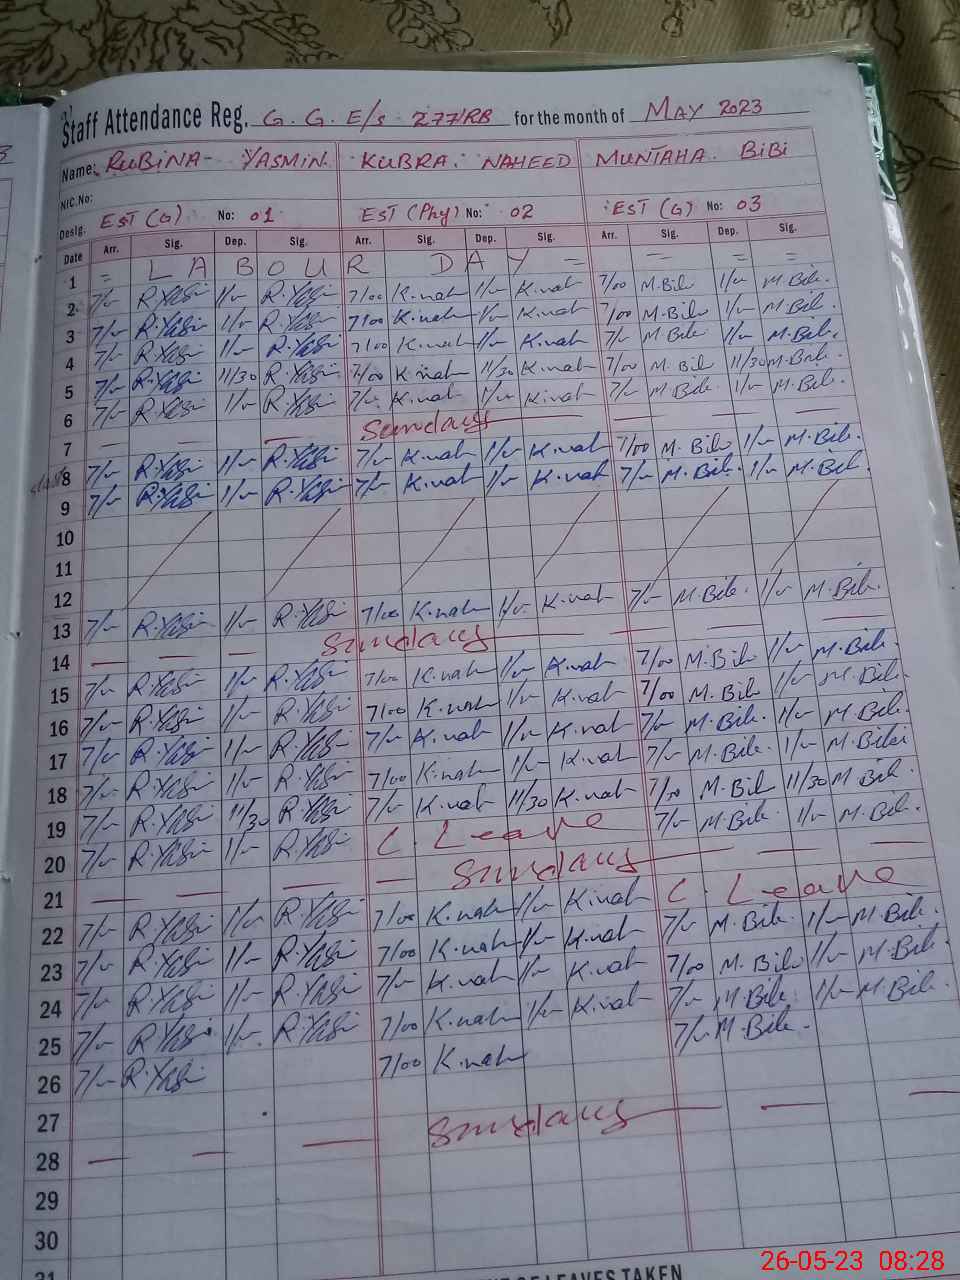 Staff Attendance Reg. G. G. E/s 277/RB for the month of MAY 2023
Name: RUBINA YASMIN. KUBRA. NAHEED MUNTAHA. BIBI
NIC.No:
Desig. EST (G) No: 01 EST (Phy) No: 02 EST (G) No: 03
Date Arr. Sig. Dep. Sig. Arr. Sig. Dep. Sig. Arr. Sig. Dep. Sig.
1 = LABOUR DAY = — — = =
2 7/- R.Yasi 1/- R.Yasi 7/00 K.nah 1/- K.nah 7/00 M.Bibi 1/- M.Bibi.
3 7/- R.Yasi 1/- R.Yasi 7/00 K.nah 1/- K.nah 7/00 M.Bibi 1/- M.Bibi.
4 7/- R.Yasi 1/- R.Yasi 7/00 K.nah 1/- K.nah 7/- M.Bibi 1/- M.Bibi.
5 7/- R.Yasi 11/30 R.Yasi 7/00 K.nah 11/30 K.nah 7/00 M.Bibi 11/30 M.Bibi.
6 7/- R.Yasi 1/- R.Yasi 7/- K.nah 1/- K.nah 7/- M.Bibi. 1/- M.Bibi.
7 — — — Sunday — — —
8 7/- R.Yasi 1/- R.Yasi 7/- K.nah 1/- K.nah 7/00 M.Bibi 1/- M.Bibi.
9 7/- R.Yasi 1/- R.Yasi 7/- K.nah 1/- K.nah 7/- M.Bibi. 1/- M.Bibi.
10
11
12
13 7/- R.Yasi 1/- R.Yasi 7/00 K.nah 1/- K.nah 7/- M.Bibi. 1/- M.Bibi.
14 — — — Sunday — — —
15 7/- R.Yasi 1/- R.Yasi 7/00 K.nah 1/- K.nah 7/00 M.Bibi 1/- M.Bibi.
16 7/- R.Yasi 1/- R.Yasi 7/00 K.nah 1/- K.nah 7/00 M.Bibi 1/- M.Bibi.
17 7/- R.Yasi 1/- R.Yasi 7/- K.nah 1/- K.nah 7/- M.Bibi. 1/- M.Bibi.
18 7/- R.Yasi 1/- R.Yasi 7/00 K.nah 1/- K.nah 7/- M.Bibi. 1/- M.Bibi
19 7/- R.Yasi 11/30 R.Yasi 7/- K.nah 11/30 K.nah M.Bibi 11/30 M.Bibi.
20 7/- R.Yasi 1/- R.Yasi C. Leave 7/- M.Bibi. 1/- M.Bibi.
21 — — — — Sunday — — —
22 7/- R.Yasi 1/- R.Yasi 7/00 K.nah 1/- K.nah C. Leave
23 7/- R.Yasi 1/- R.Yasi 7/00 K.nah 1/- K.nah 7/- M.Bibi. 1/- M.Bibi.
24 7/- R.Yasi 1/- R.Yasi 7/- K.nah 1/- K.nah 7/00 M.Bibi 1/- M.Bibi.
25 7/- R.Yasi 1/- R.Yasi 7/00 K.nah 1/- K.nah 7/- M.Bibi. 1/- M.Bibi.
26 7/- R.Yasi 7/00 K.nah 7/- M.Bibi.
27
28 — — — Sunday — — —
29
30
31
OF LEAVES TAKEN
26-05-23 08:28